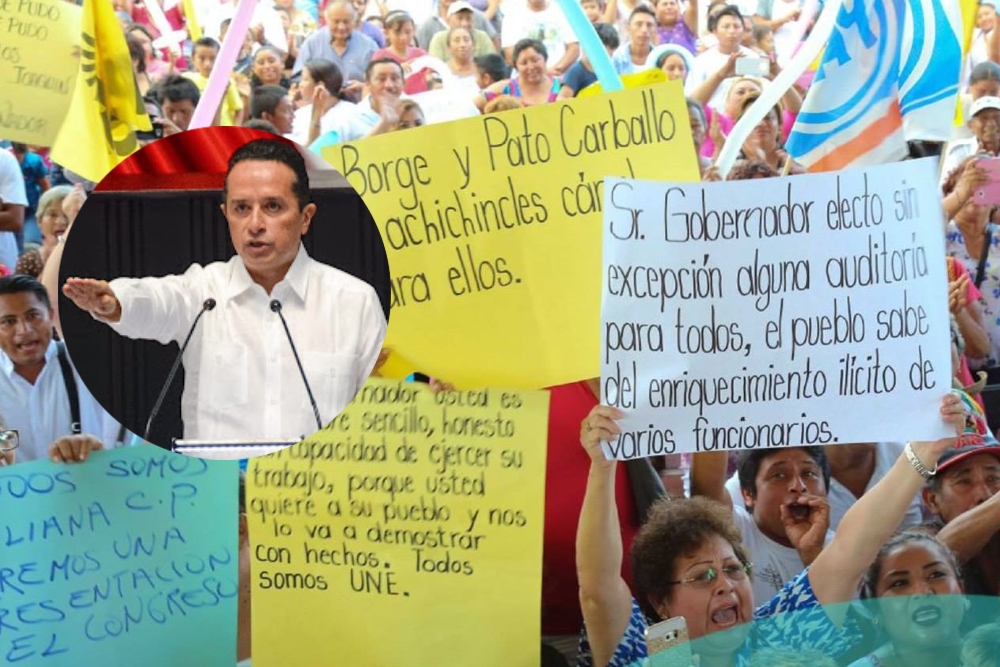 DE PUDO
PUDO
NADOR
Borge y Pato Carballo
achichincles
para ellos.
Sr. Gobernador electo sin
excepción alguna auditoría
para todos, el pueblo sabe
del enriquecimiento ilícito de
varios funcionarios.
usted es
sencillo, honesto
capacidad de ejercer su
trabajo, porque usted
quiere a su pueblo y nos
lo va a demostrar
con hechos. Todos
somos UNE.
SOMOS
LIANA C.P.
REMOS UNA
RESENTACION
EL CONGRESO